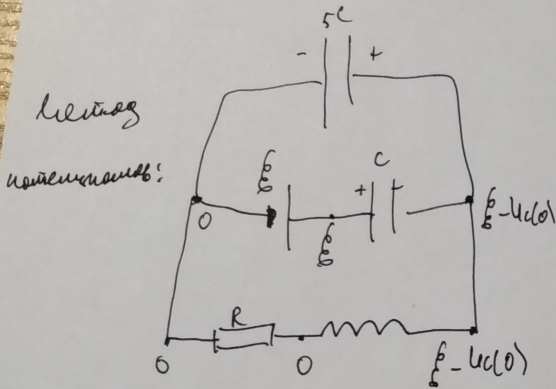 5C
- +
Метод
потенциалов:
ℰ
C
+ -
0
ℰ
ℰ-Uc(0)
R
0
0
ℰ-Uc(0)